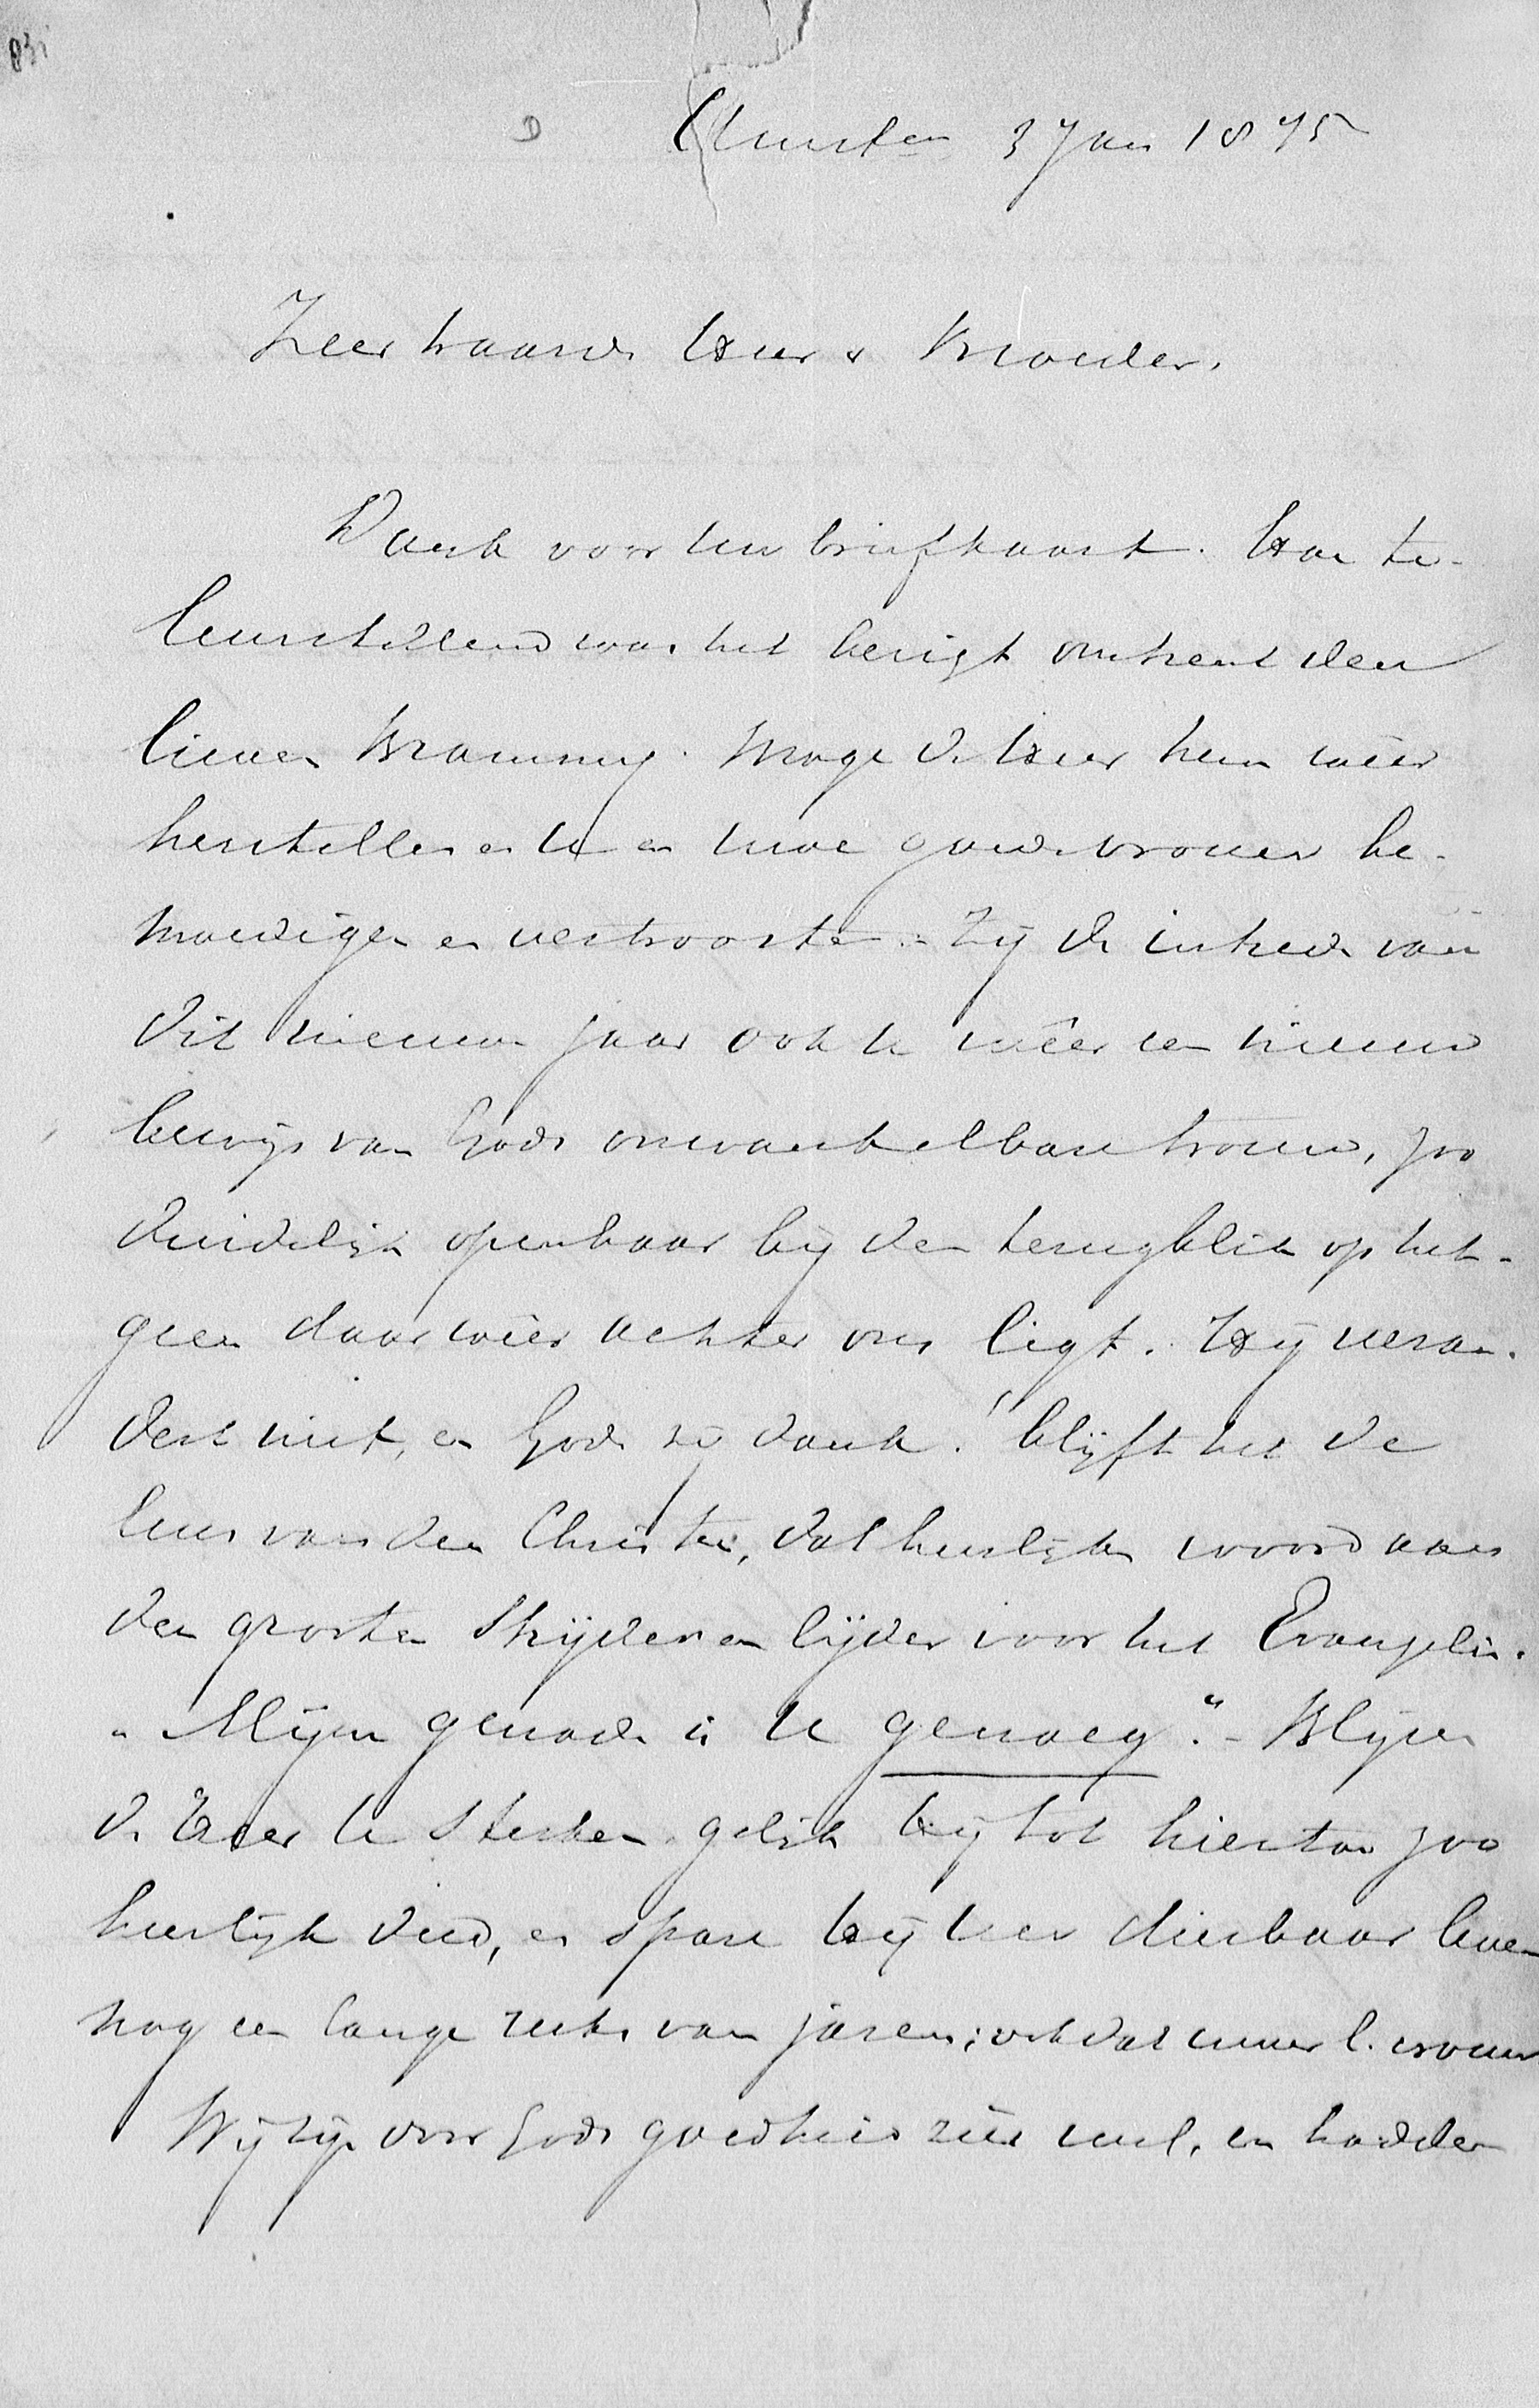 Amstm 3 Jan 1875
Zeer waarde Heer & Broeder,
Dank voor uw briefkaart. Hoe te-
leurstellend was het berigt omtrent den
lieven Brammy. Moge de Heer hem wêer
herstellen en U en uwe gade vrouw be-
moedigen en vertroosten. - Zij de intrede van
dit nieuwe jaar ook U wêer een nieuw
bewijs van Gods onwankelbare trouw, zoo
duidelijk openbaar bij den terugblik op het-
geen daar wêer achter ons ligt. Hij veran-
dert niet, en Gode zij dank! blijft het de
leus van den Christen, dat heerlijke woord aan
den grooten strijder en lijder voor het Evangelie.
„Mijne genade is U genoeg“. - Blijve
de Heer U sterken gelijk Hij tot hiertoe zoo
heerlijk deed, en spare Hij Uw dierbaar leven
nog een lange reeks van jaren; ook dat uwer l. vrouw
Wij zijn door Gods goedheid zeer wel, en hadden